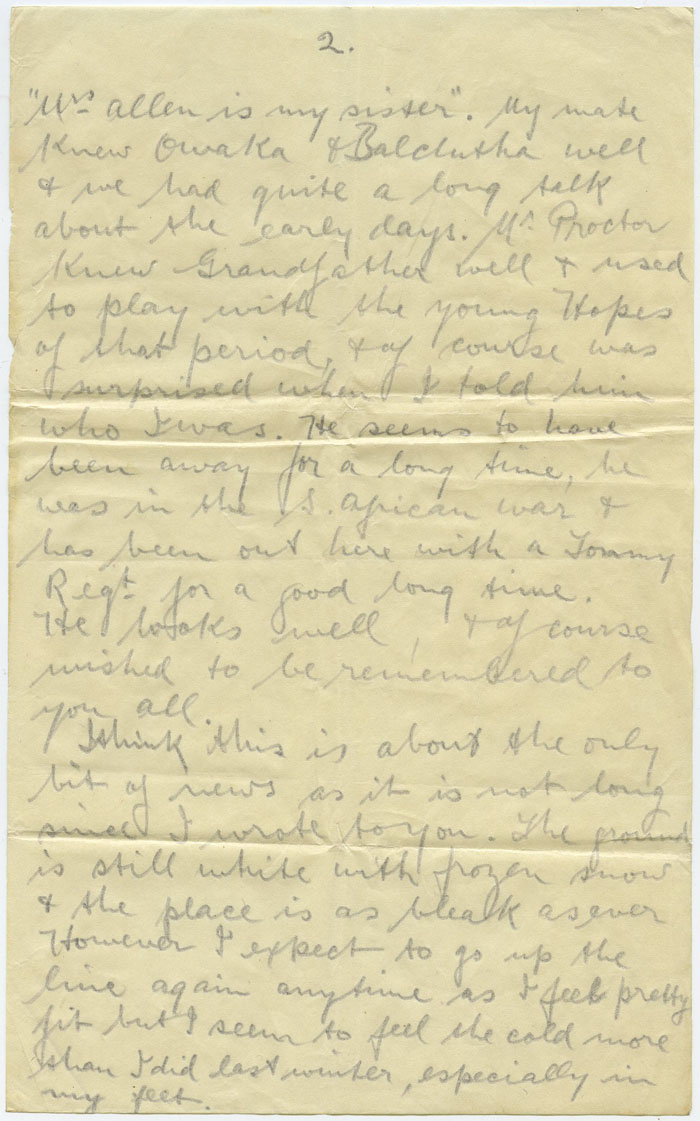 2.
"Mrs allen is my sister". My mate
knew Owaka & Balclutha well
& we had quite a long talk
about the early days. Mr Proctor
knew Grandfather well & used
to play with the young Hopes
of that period, & of course was
surprised when I told him
who I was. He seems to have
been away for a long time, he
was in the S. African war &
has been out here with a Tommy
Regt for a good long time.
He looks well, & of course
wished to be remembered to
you all.
I think this is about the only
bit of news as it is not long
since I wrote to you. The ground
is still white with frozen snow
& the place is as bleak as ever
However I expect to go up the
line again anytime as I feel pretty
fit but I seem to feel the cold more
than I did last winter, especially in
my feet.